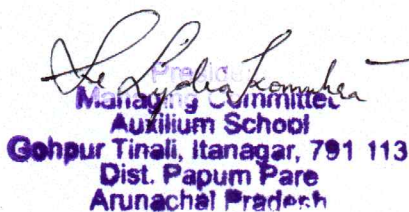 Sr Lydia
President
Managing Committee
Auxilium School
Gohpur Tinali, Itanagar, 791 113
Dist. Papum Pare
Arunachal Pradesh